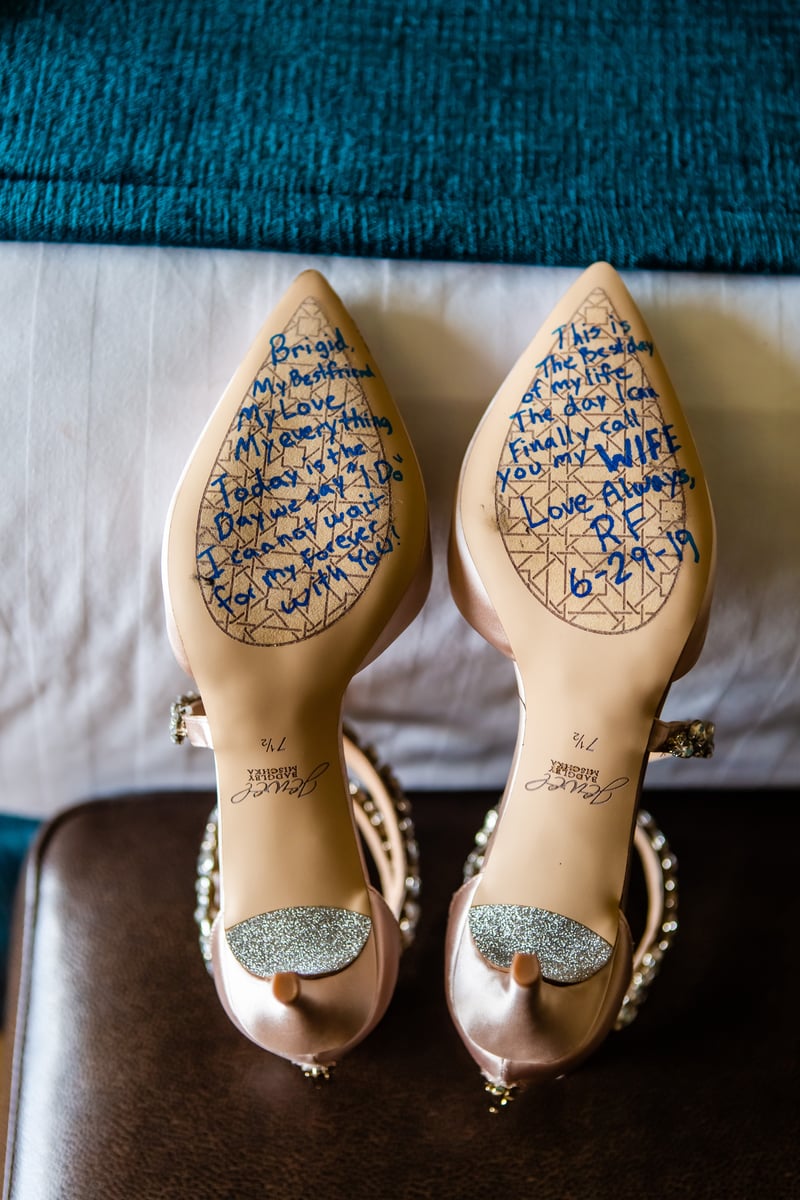 Brigid,
My Bestfriend
My Love
My everything
Today is the
Day we say "I Do"
I cannot wait
for my Forever
with You!
This is
The Best day
of my life
The day I can
Finally call
you my WIFE
Love Always,
RF
6-29-19
7½
Jewel
BADGLEY
MISCHKA
7½
Jewel
BADGLEY
MISCHKA